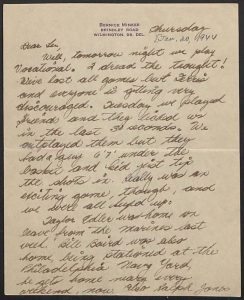 BERNICE MINNER
BRINDLEY ROAD
WILMINGTON 56, DEL.
Thursday
Dec. 20, 1944
Dear Lee,
Well, tomorrow night we play
Vocational. I dread the thought!
We've lost all games but
and everyone is getting very
discouraged. Tuesday we played
Friend and they licked us
in the last 3 seconds. We
outplayed them but they
had a guy 6'7" under the
basket and he'd just tip
the shots in. Really was an
exciting game, though, and
we were all keyed up.
Taylor was home on
leave from the marines last
week. Bill Baird was also
home, being stationed at the
Philadelphia Navy Yard,
he gets home nearly every
weekend now. Also Ralph Jones